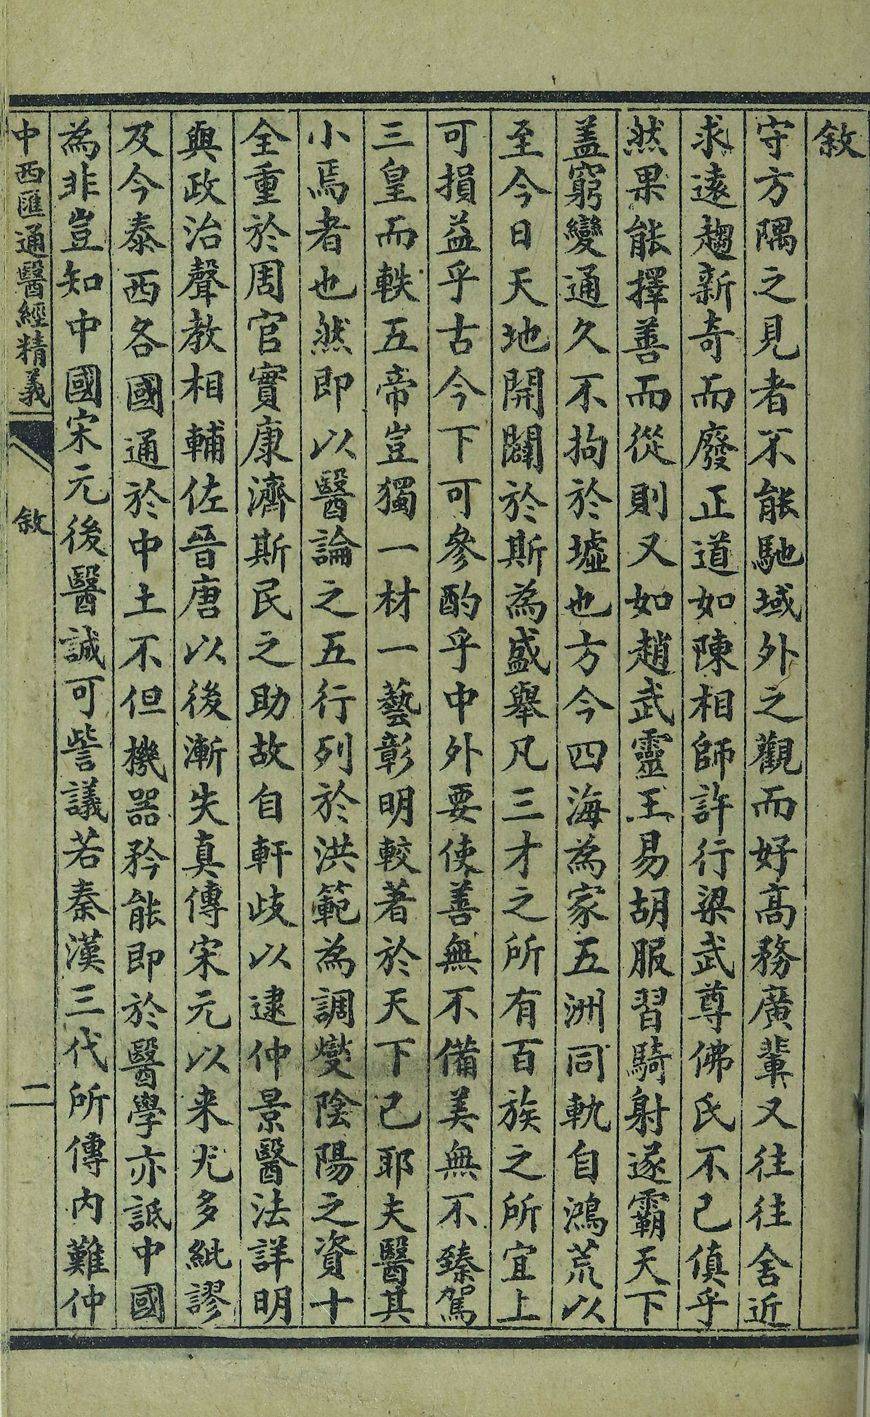 敘
守方隅之見者不能馳域外之觀而好高務廣輩又往往舍近
求遠趨新奇而廢正道如陳相師許行梁武尊佛氏不已傎乎
然果能擇善而從則又如趙武靈王易胡服習騎射遂霸天下
蓋窮變通久不拘於墟也方今四海為家五洲同軌自鴻荒以
至今日天地開闢於斯為盛舉凡三才之所有百族之所宜上
可損益乎古今下可參酌乎中外要使善無不備美無不臻駕
三皇而軼五帝豈獨一材一藝彰明較著於天下已耶夫醫其
小焉者也然即以醫論之五行列於洪範為調燮陰陽之資十
全重於周官實康濟斯民之助故自軒歧以逮仲景醫法詳明
與政治聲教相輔佐晉唐以後漸失真傳宋元以来尤多紕謬
及今泰西各國通於中土不但機器矜能即於醫學亦詆中國
為非豈知中國宋元後醫誠可訾議若秦漢三代所傳內難仲
中西匯通醫經精義
敘
二